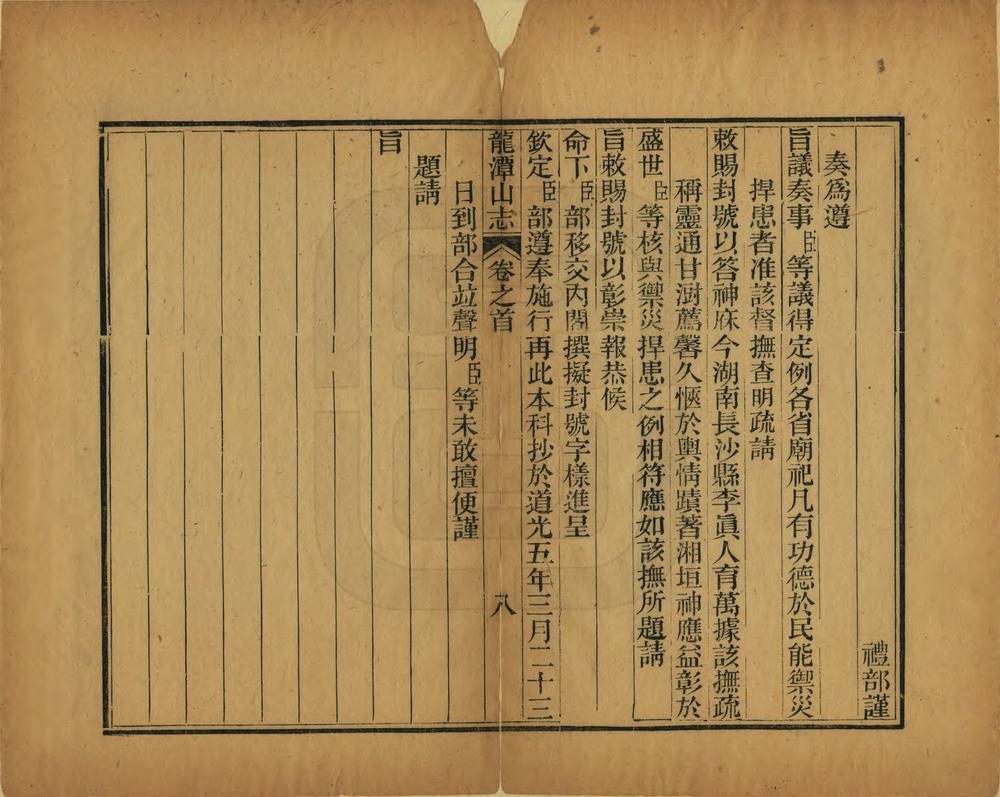 禮部謹
奏爲遵
旨議奏事臣等議得定例各省廟祀凡有功德於民能禦災
捍患者准該督撫查明疏請
敕賜封號以答神庥今湖南長沙縣李眞人育萬據該撫疏
稱靈通甘澍薦馨久愜於輿情蹟著湘垣神應益彰於
盛世臣等核與禦災捍患之例相符應如該撫所題請
旨敕賜封號以彰崇報恭候
命下臣部移交內閣撰擬封號字樣進呈
欽定臣部遵奉施行再此本科抄於道光五年三月二十三
龍潭山志 卷之首 八
日到部合竝聲明臣等未敢擅便謹
題請
旨